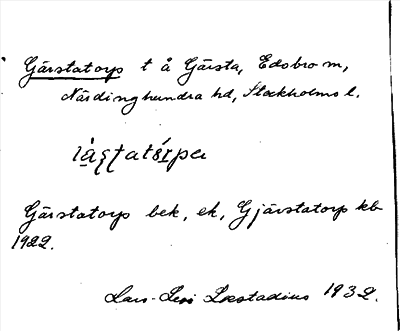 Gärstatorp t å Gärsta, Edsbro sn,
Närdinghundra hd, Stockholms l.
Gärstatorp bek, ek, Gjärstatorp kb
1922.
Lars-Levi Læstadius 1932.